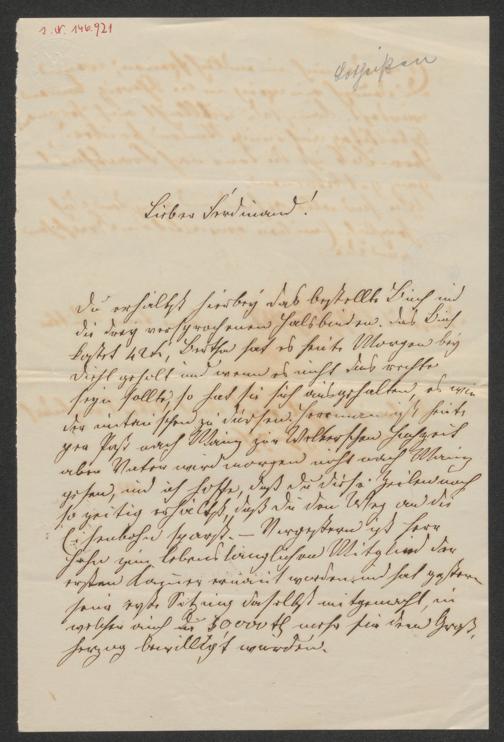 I. N. 146.921
Lotheißen
Lieber Ferdinand!
Du erhältst hierbey das bestellte Buch und
die drey versprochenen Halsbinden. Das Buch
kostet 42 x, Bertha hat es heute Morgen bey
Diehl geholt und wenn es nicht das rechte
seyn sollte, so hat sie sich ausgehalten, es
der umtauschen zu dürfen. Herrmann ist heute
per Post nach Mainz zur Hochzeit
aber Vater wird morgen nicht nach Mainz
gehen, und ich hoffe, daß du diese Zeilen noch
so zeitig erhältst, daß Du den Weg an die
Eisenbahn sparst. — Vorgestern ist Herr
Hahn zum lebenslänglichen Mitglied der
ersten Kammer ernannt worden und hat gestern
seine erste Sitzung daselbst mitgemacht, in
welcher auch 30000 fl mehr für den Groß-
herzog bewilligt wurden.